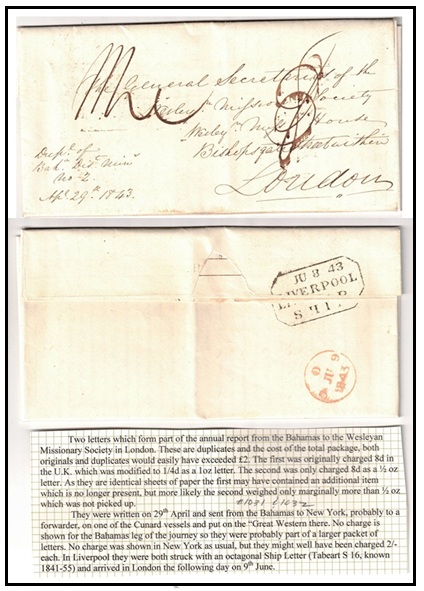 The General Secretaries of the
Wesleyn Missony Society
Wesleyn Missn House
Bishopsgate Street within
London
Dupte of
Bahs Dist Mins
No 2
Apl 29th 1843.
JU 8 43
LIVERPOOL
SHIP
9
JU 9
1843
Two letters which form part of the annual report from the Bahamas to the Wesleyan
Missionary Society in London. These are duplicates and the cost of the total package, both
originals and duplicates would easily have exceeded £2. The first was originally charged 8d in
the U.K. which was modified to 1/4d as a 1oz letter. The second was only charged 8d as a ½ oz
letter. As they are identical sheets of paper the first may have contained an additional item
which is no longer present, but more likely the second weighed only marginally more than ½ oz
which was not picked up. #1031 £1032
They were written on 29th April and sent from the Bahamas to New York, probably to a
forwarder, on one of the Cunard vessels and put on the "Great Western there. No charge is
shown for the Bahamas leg of the journey so they were probably part of a larger packet of
letters. No charge was shown in New York as usual, but they might well have been charged 2/-
each. In Liverpool they were both struck with an octagonal Ship Letter (Tabeart S 16, known
1841-55) and arrived in London the following day on 9th June.